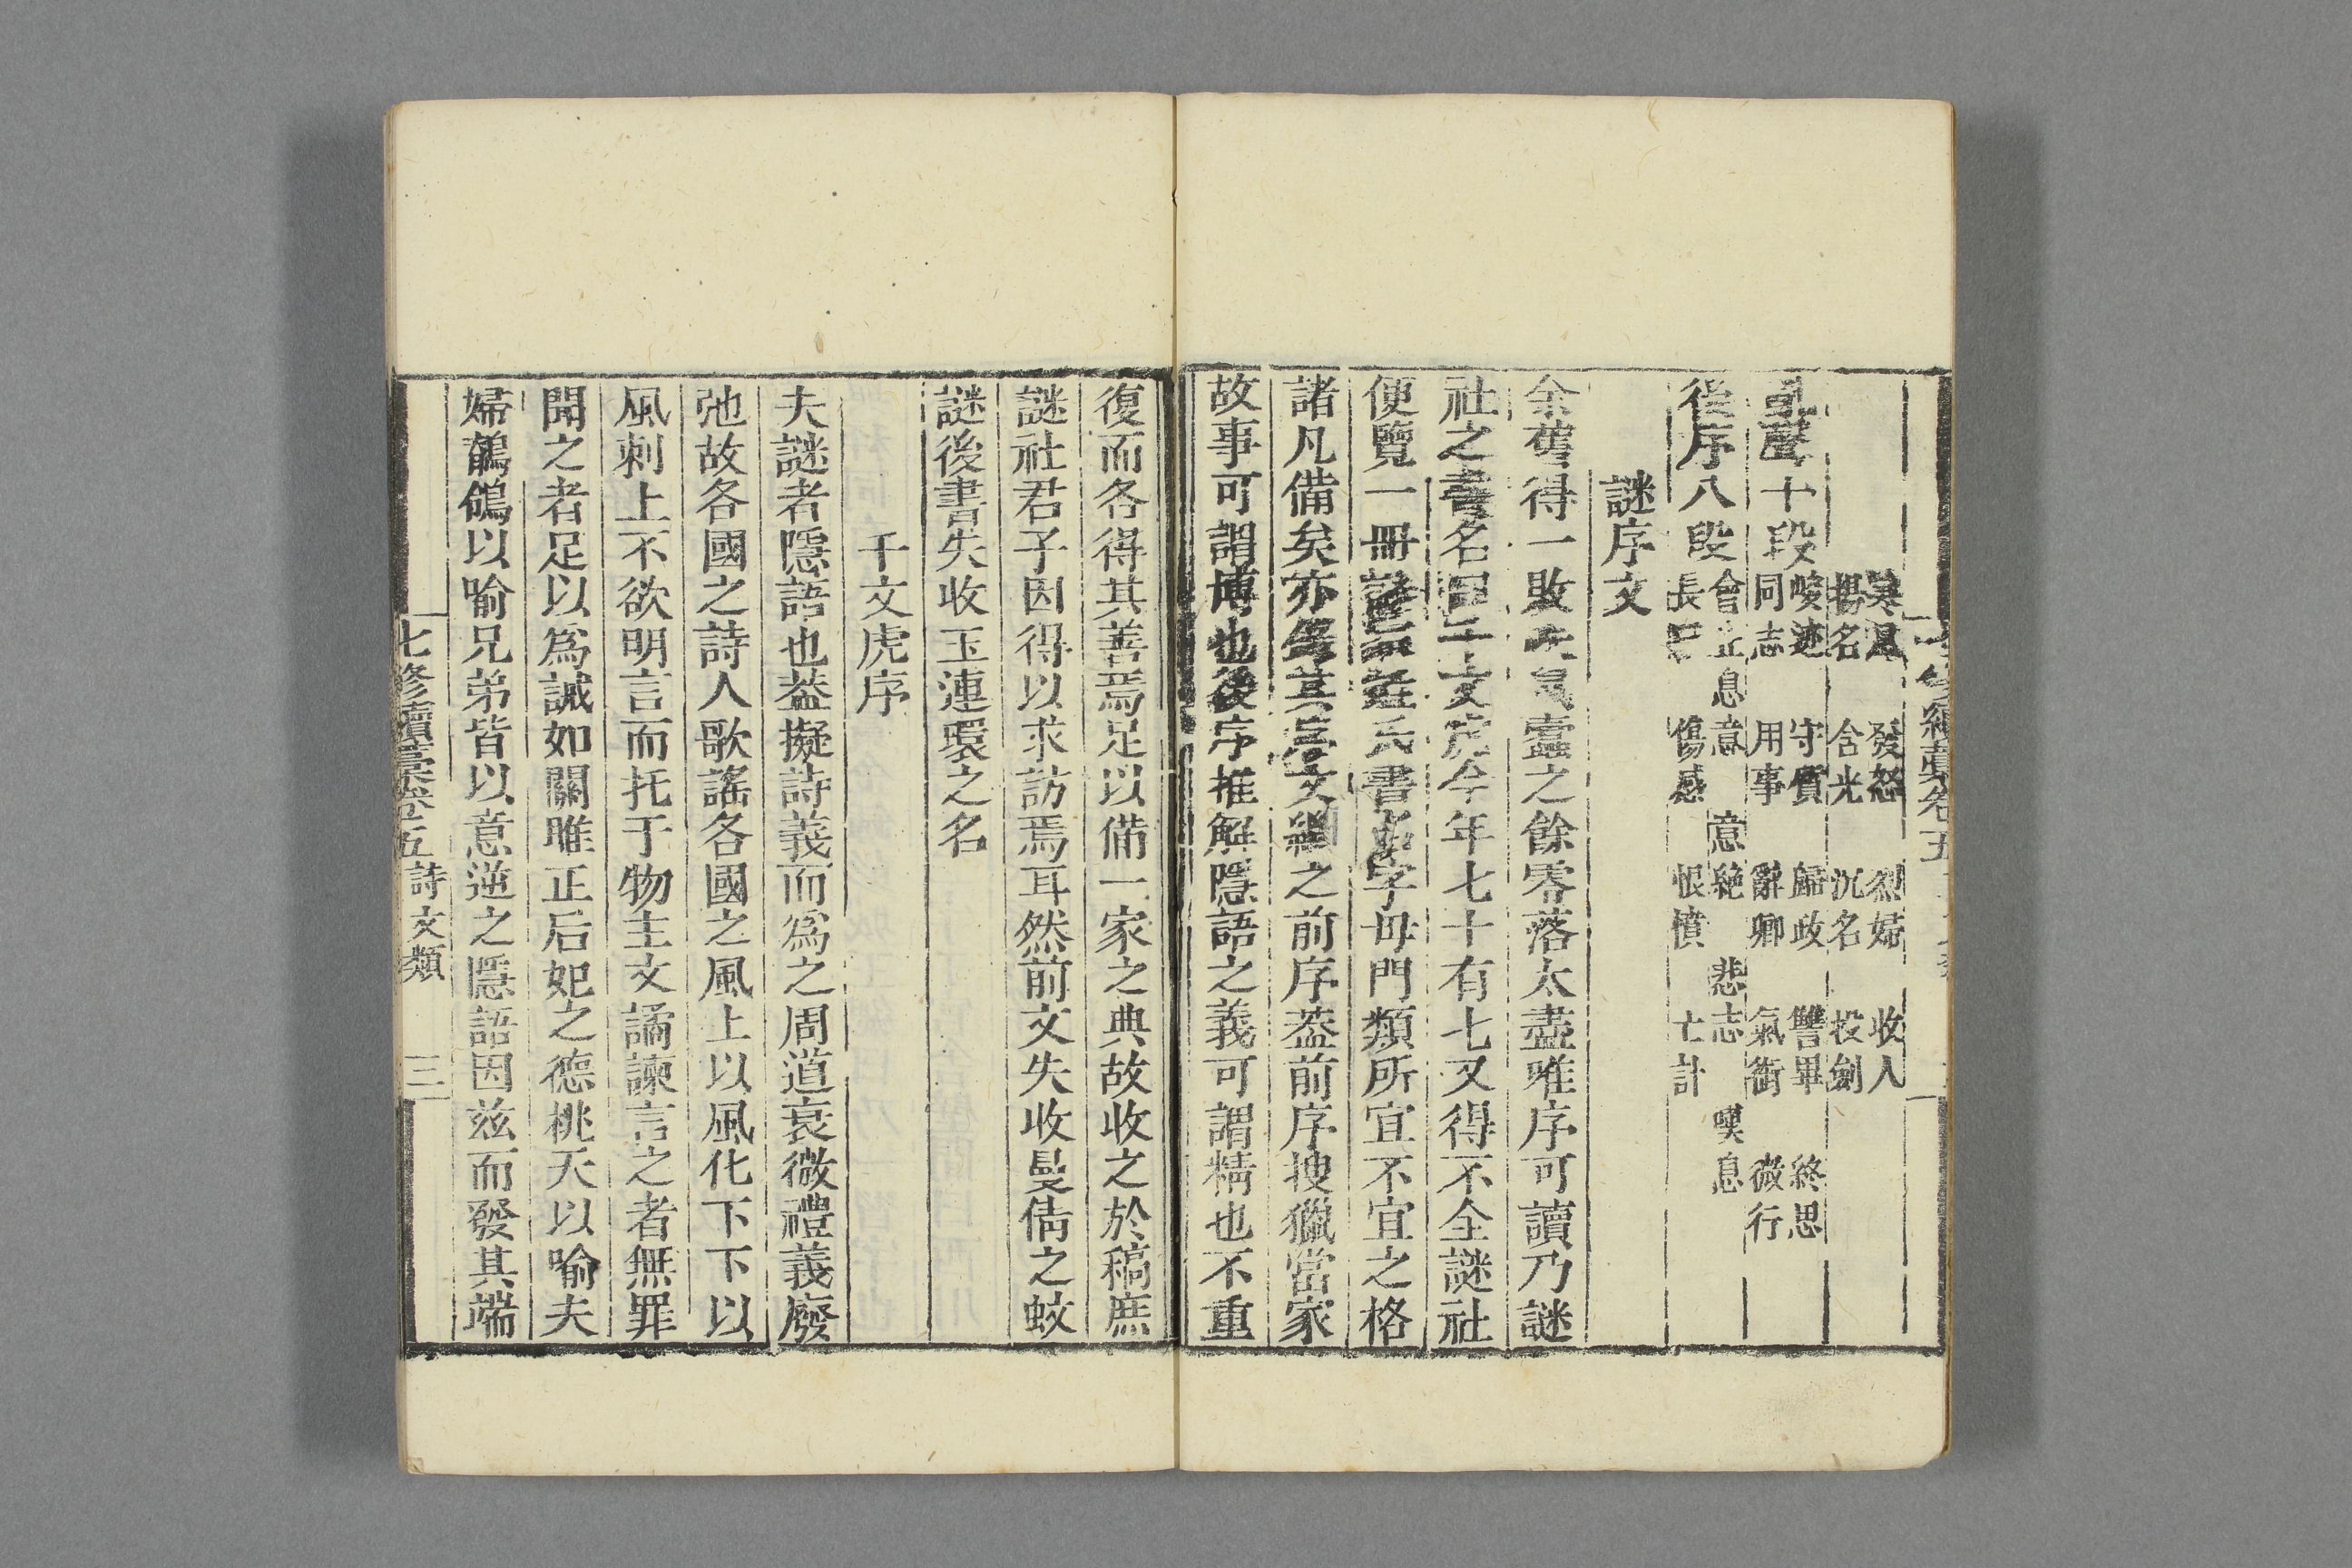 寒風 發怒 烈婦 收人
揚名 含光 沉名 投劍
亂聲十段
峻迹 守質 歸政 讐畢 終思
同志 用事 辭卿 氣衝 微行
後序八段
會止息意 意絶 悲志 嘆息
長 傷感 恨憤 亡計
謎序文
余舊得一敗 蠹之餘零落太盡唯序可讀乃謎
社之書名曰千文虎今年七十有七又得不全謎社
便覽一冊 氏書 字母門類所宜不宜之格
諸凡備矣亦 其 文 之前序蓋前序捜獵當家
故事可謂博也後序推解隱語之義可謂精也不重
復而各得其善焉足以備一家之典故收之於稿庶
謎社君子因得以求訪焉耳然前文失收曼倩之蛟
謎後書失收玉連環之名
千文虎序
夫謎者隱語也葢擬詩義而爲之周道衰微禮義廢
弛故各國之詩人歌謠各國之風上以風化下下以
風刺上不欲明言而托于物主文譎諫言之者無罪
聞之者足以爲誡如關雎正后妃之德桃夭以喻夫
婦鶺鴒以喻兄弟皆以意逆之隱語因兹而發其端
七修續藳卷五詩文類 三